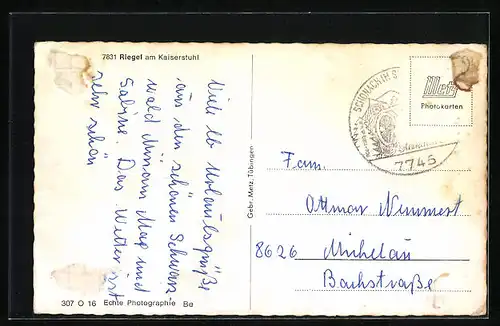 7831 Riegel am Kaiserstuhl
Viele lb Urlaubsgrüße
aus den schönen Schwarz
wald Miriam Max und
Sabine. Das Wetter ist
sehr schön
307 O 16 Echte Photographie Be
Gebr. Metz, Tübingen
SCHONACH IM S
7745
Metz
Photokarten
Fam.
Ottmar
8626 Michelau
Bachstraße